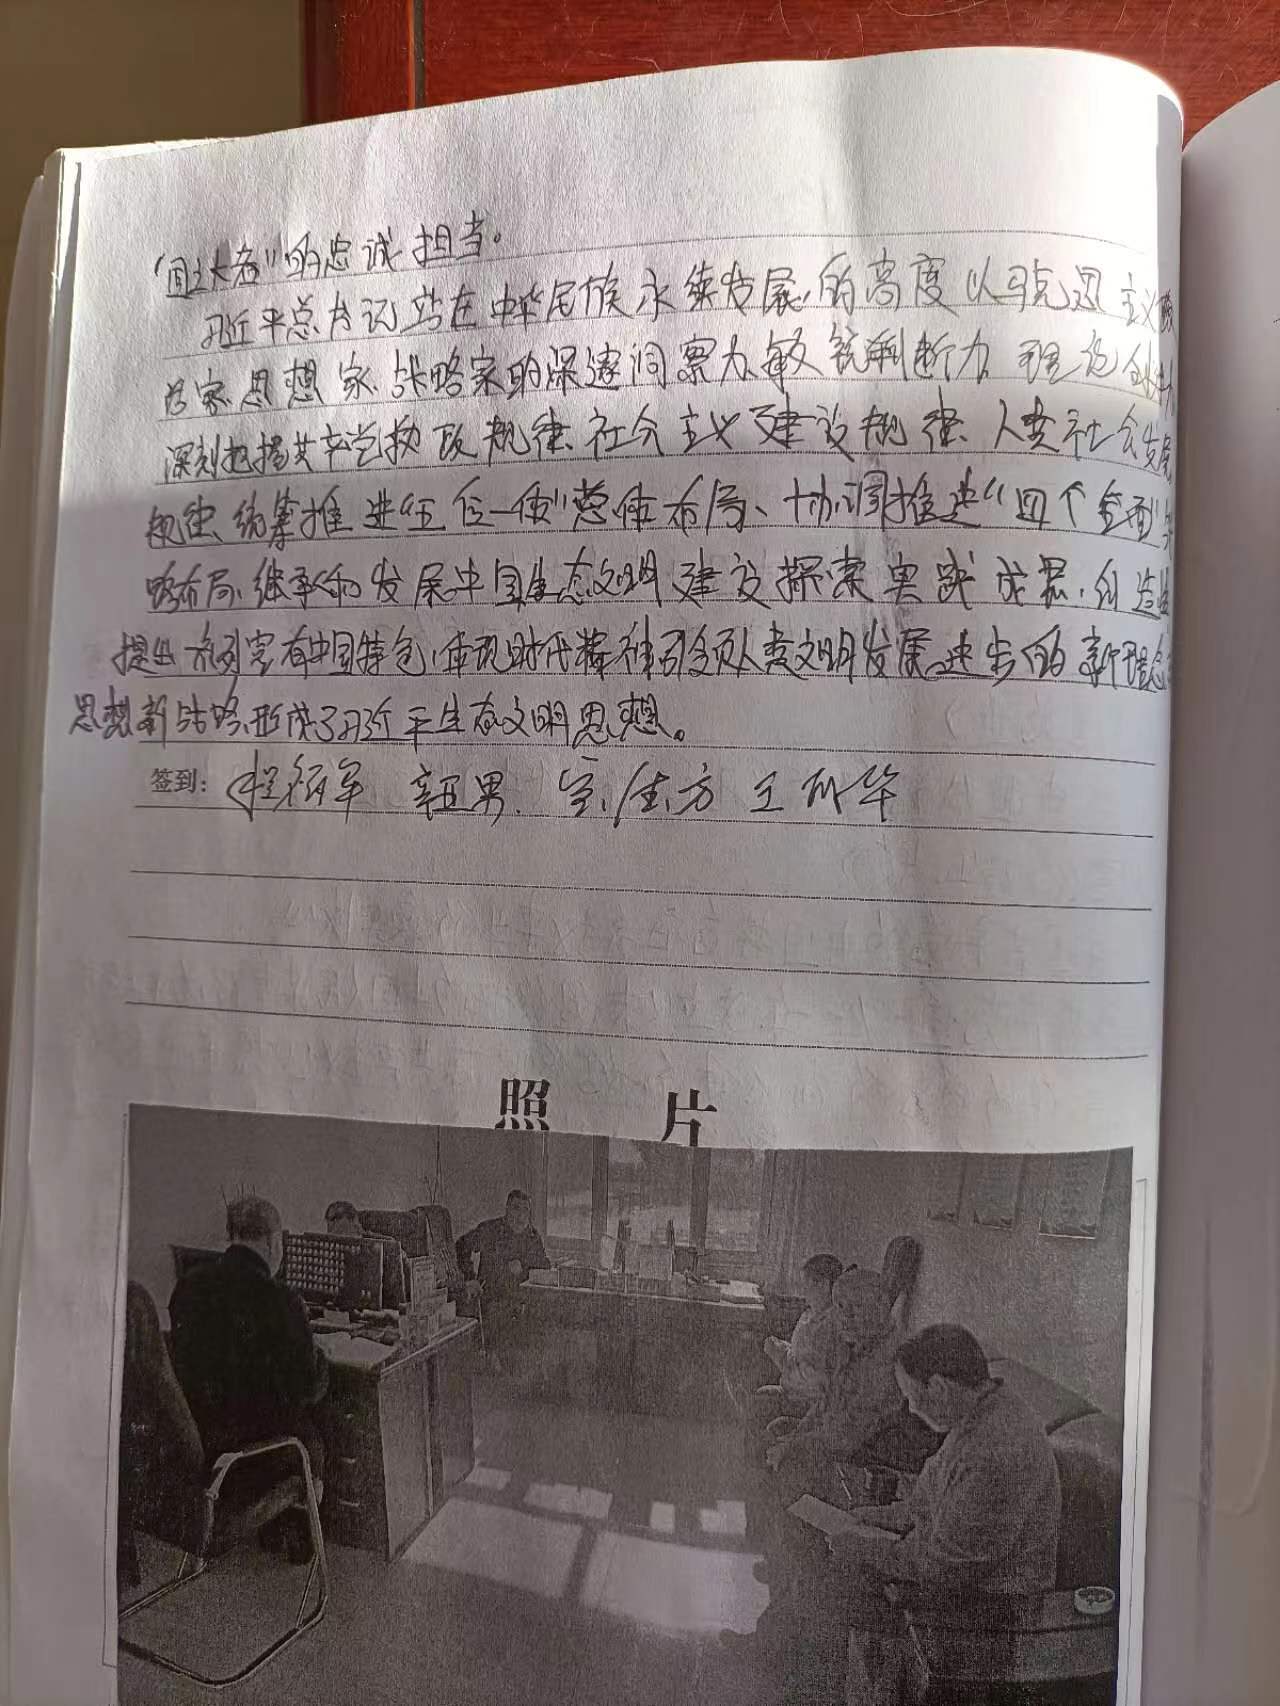 “国之大者”的忠诚担当。
习近平总书记站在中华民族永续发展的高度以马克思主义政
治家、思想家、战略家的深邃洞察力、敏锐判断力、理论创造力
深刻把握共产党执政规律、社会主义建设规律、人类社会发展
规律、统筹推进“五位一体”总体布局、协调推进“四个全面”战
略布局、继承和发展中国生态文明建设探索实践成果，创造性
提出一系列富有中国特色、体现时代精神引领人类文明发展进步的新理念
思想新战略，形成了习近平生态文明思想。
签到： 辛亚男
照 片